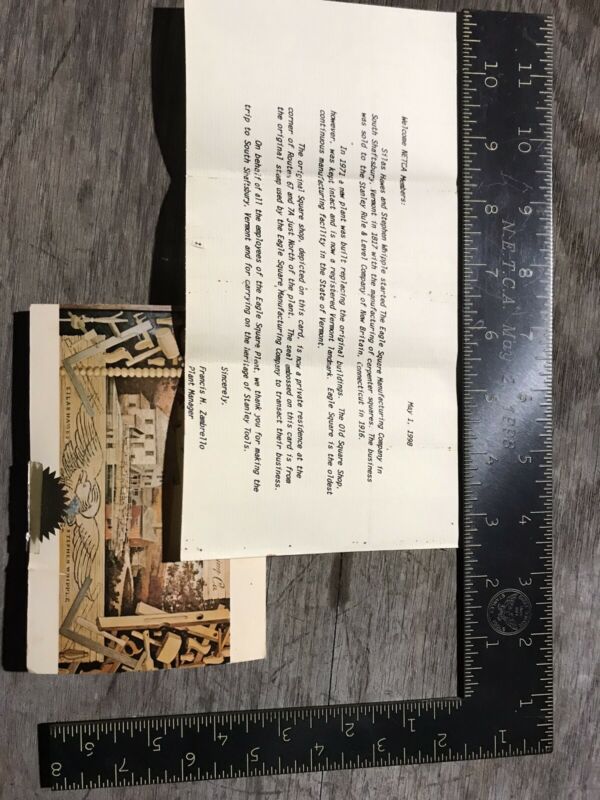 May 1, 1998
Welcome NETCA Members:
Silas Hawes and Stephen Whipple started The Eagle Square Manufacturing Company in
South Shaftsbury, Vermont in 1817 with the manufacturing of carpenter squares. The business
was sold to the Stanley Rule & Level Company of New Britain, Connecticut in 1916.
In 1971 a new plant was built replacing the original buildings. The Old Square Shop,
however, was kept intact and is now a registered Vermont landmark. Eagle Square is the oldest
continuous manufacturing facility in the State of Vermont.
The original Square shop, depicted on this card, is now a private residence at the
corner of Routes 67 and 7A just North of the plant. The seal embossed on this card is from
the original stamp used by the Eagle Square Manufacturing Company to transact their business.
On behalf of all the employees of the Eagle Square Plant, we thank you for making the
trip to South Shaftsbury, Vermont and for carrying on the heritage of Stanley Tools.
Sincerely,
Francis M. Zambrello
Plant Manager
SILAS HAWES
STEPHEN WHIPPLE
Co.
N.E.T.C.A. May 2, 1998
11 10 9 8 7 6 5 4 3 2 1
10 9 8 7 6 5 4 3 2 1
8 7 6 5 4 3 2 1
6 5 4 3 2 1